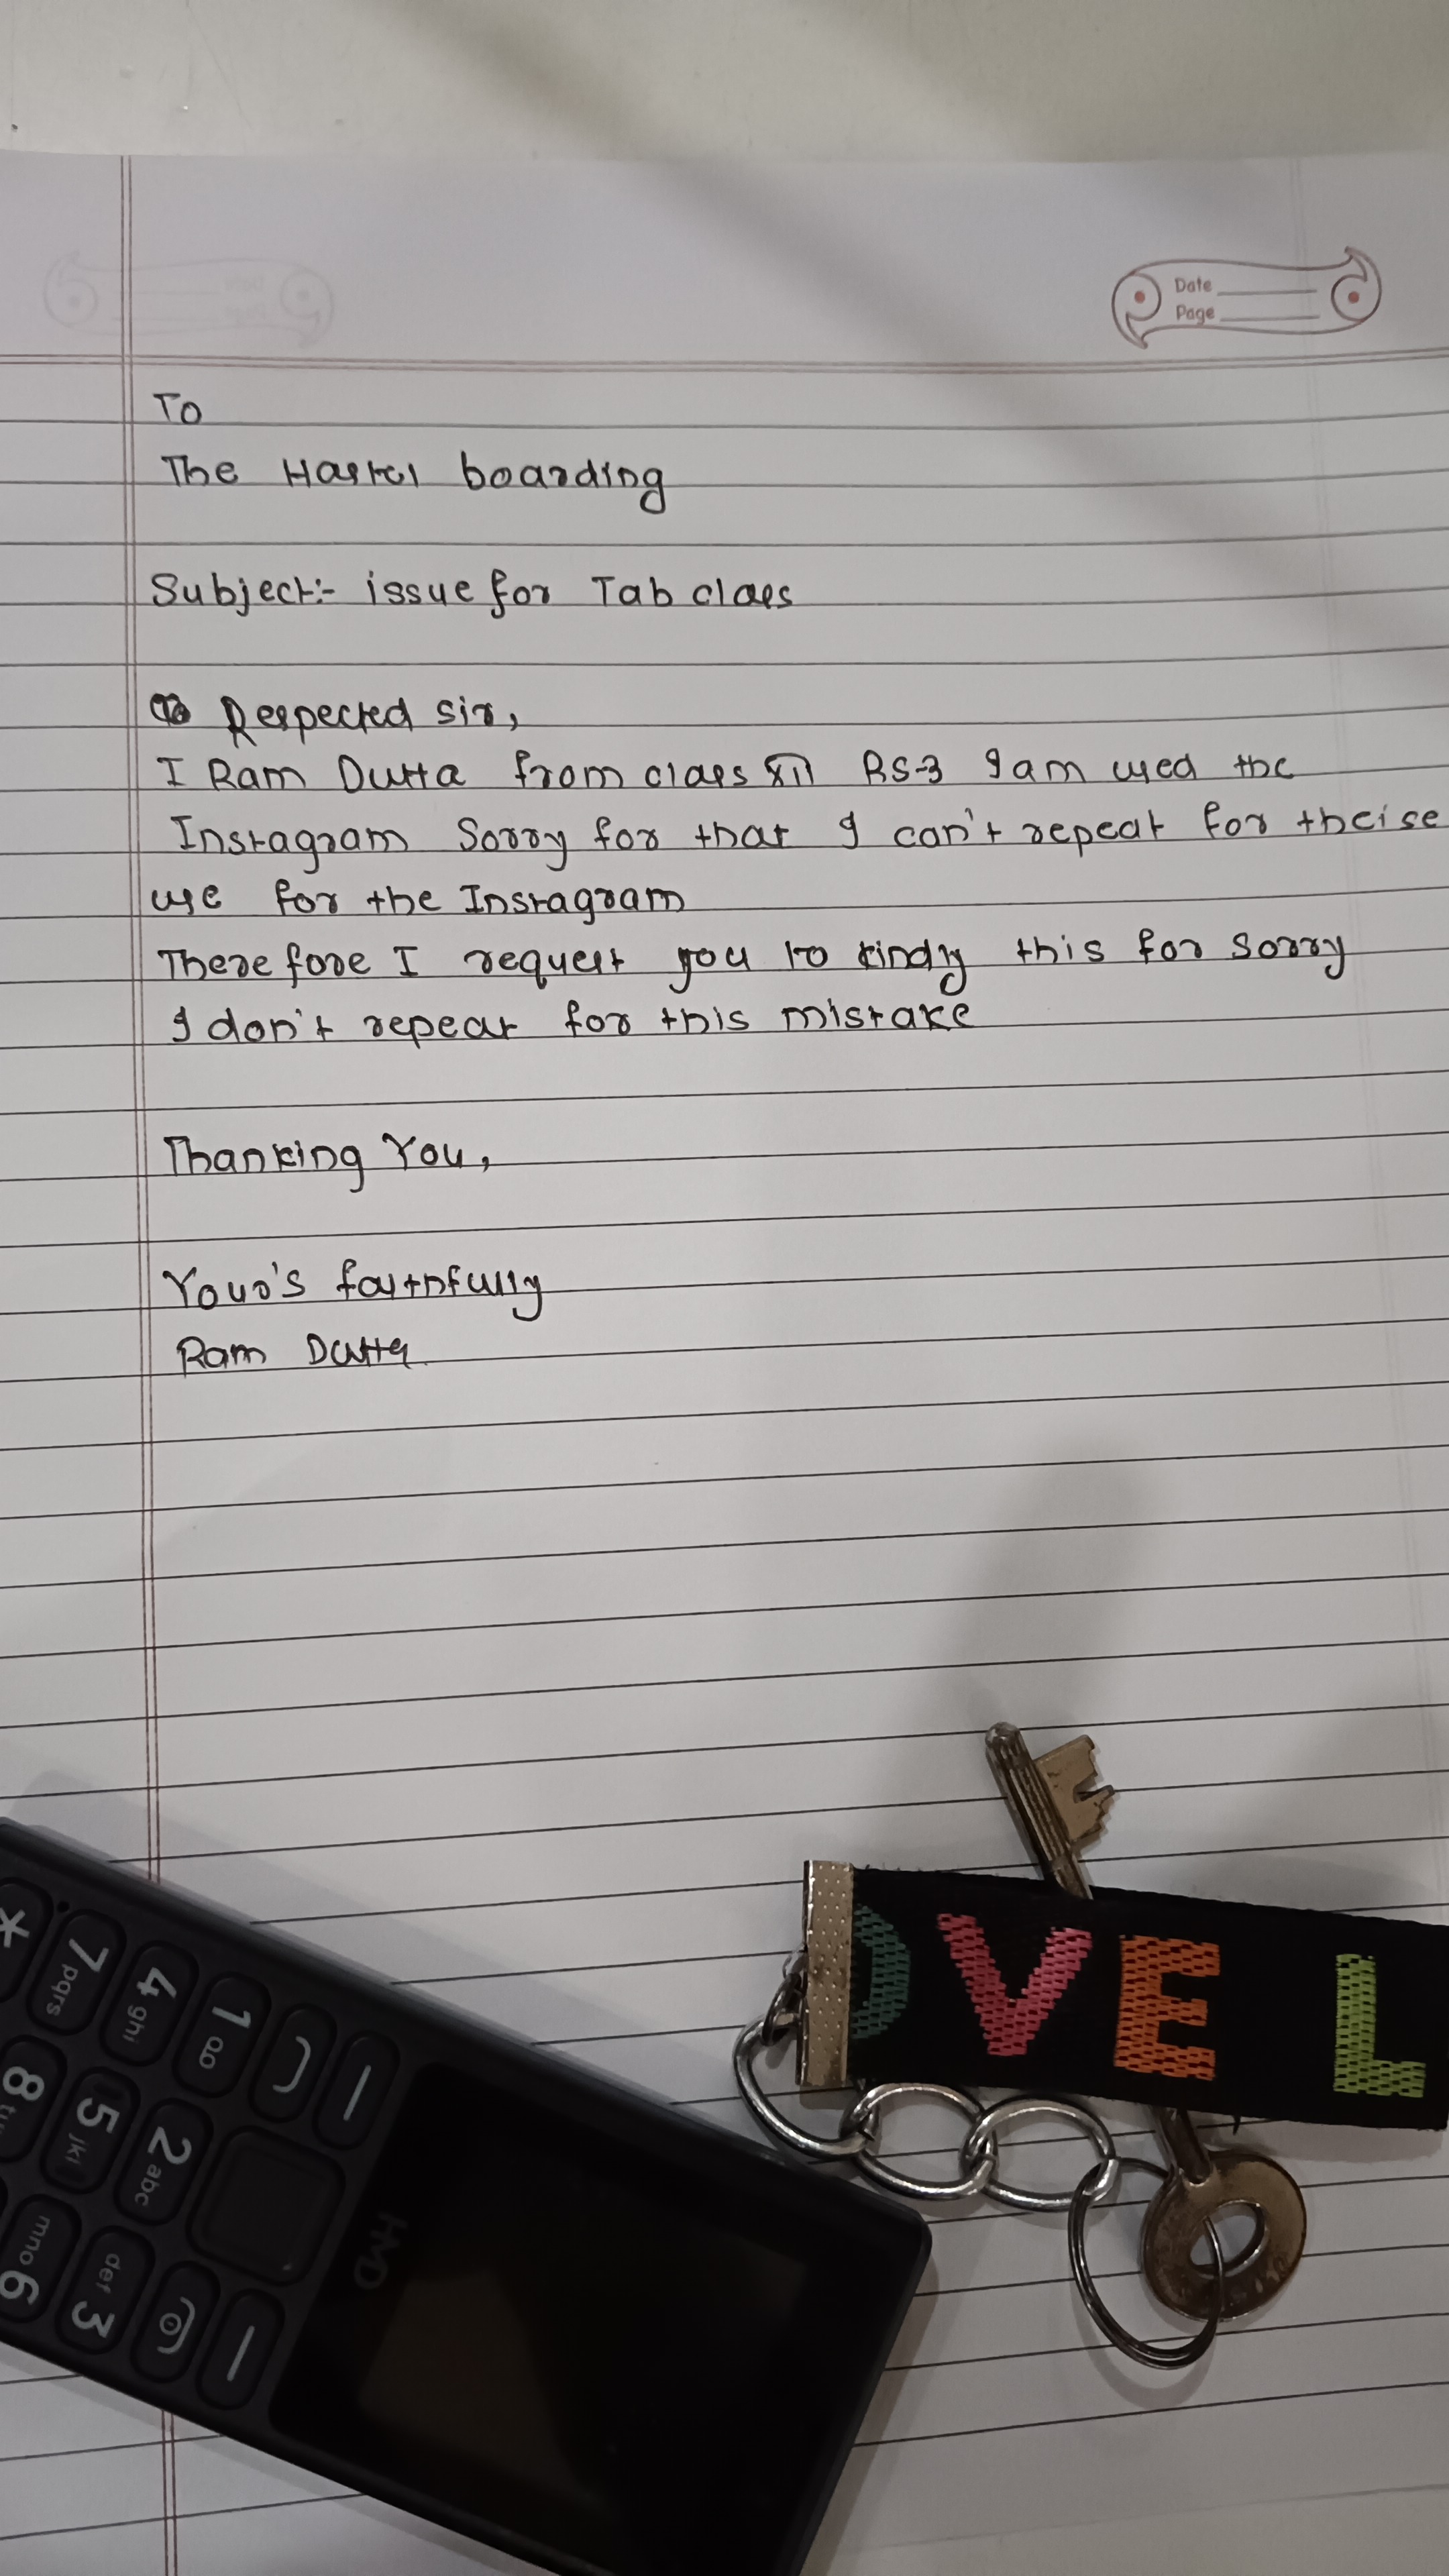 Date
Page
To
The Hastel boarding
Subject:- issue for Tab class
Respected sir,
I Ram Dutta from class XII RS-3 I am used the
Instagram Sorry for that I can't repeat for theise
use for the Instagram
Therefore I request you to kindly this for sorry
I don't repeat for this mistake
Thanking You,
Your's faithfully
Ram Dutta
OVE L
HMD
1
2 abc
def 3
4 ghi
5 jkl
mno 6
7 pqrs
8
*